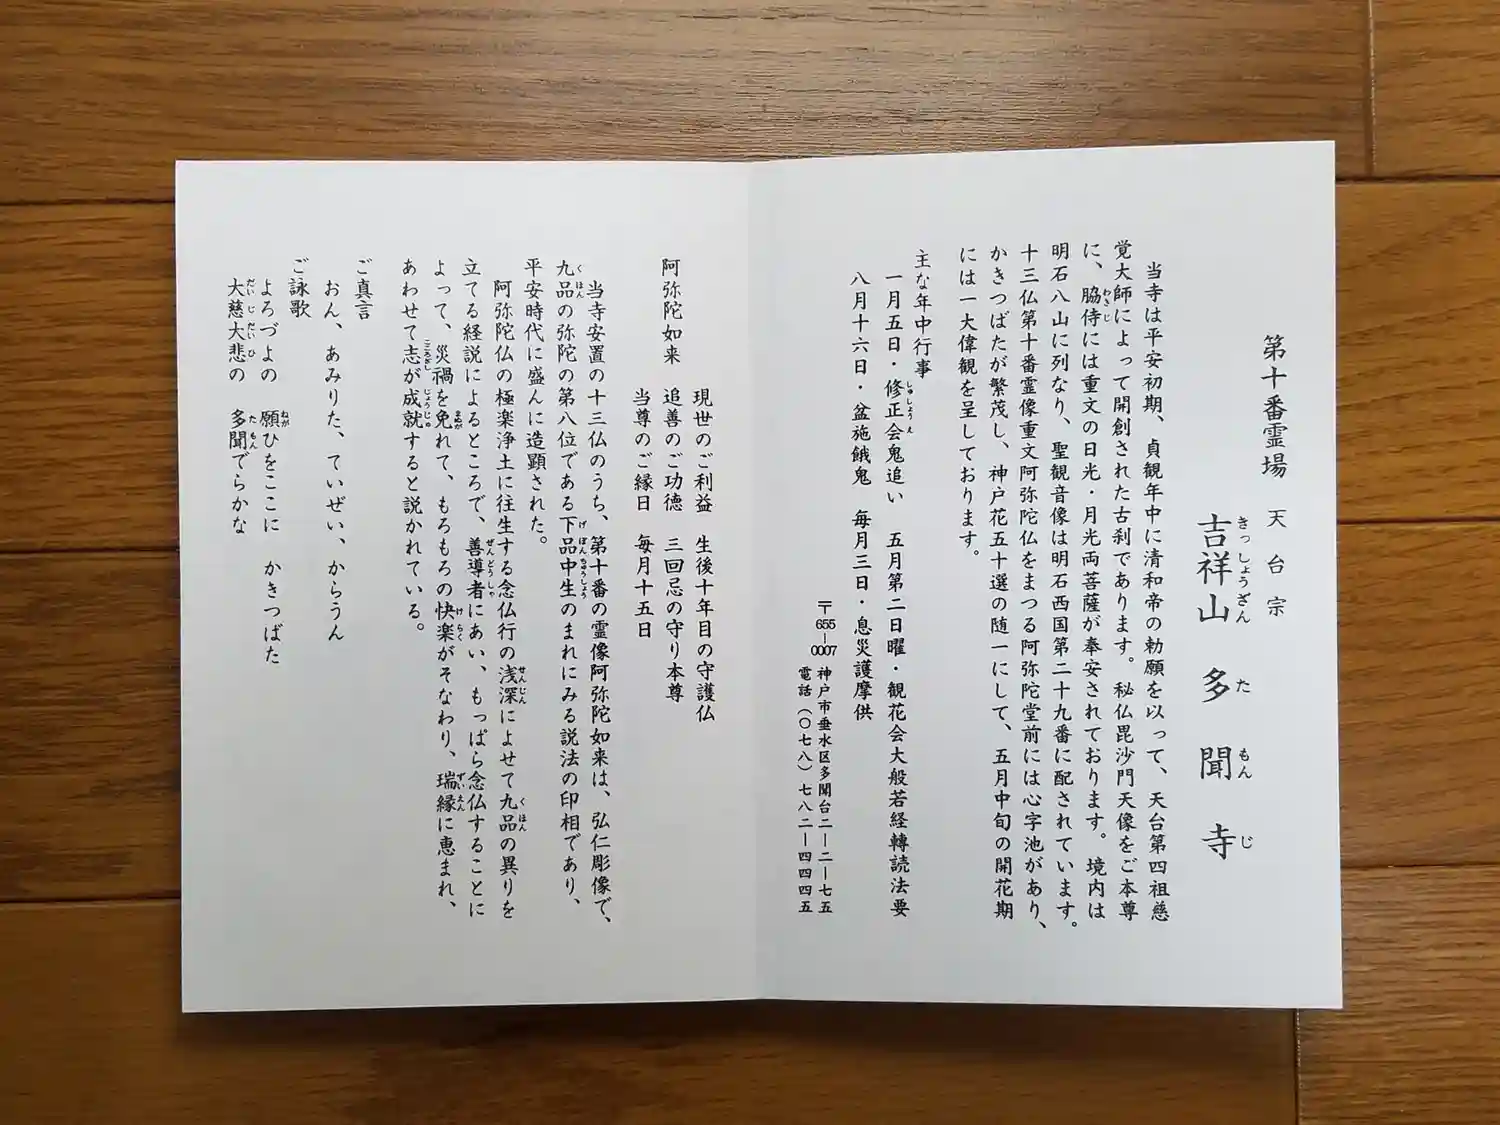 第十番霊場
天台宗
吉祥山　多聞寺
きっしょうざん　たもんじ
当寺は平安初期、貞観年中に清和帝の勅願を以って、天台第四祖慈
覚大師によって開創された古刹であります。秘仏毘沙門天像をご本尊
に、脇侍には重文の日光・月光両菩薩が奉安されております。境内は
わきじ
明石八山に列なり、聖観音像は明石西国第二十九番に配されています。
十三仏第十番霊像重文阿弥陀仏をまつる阿弥陀堂前には心字池があり、
かきつばたが繁茂し、神戸花五十選の随一にして、五月中旬の開花期
には一大偉観を呈しております。
主な年中行事
一月五日・修正会鬼追い　五月第二日曜・観花会大般若経轉読法要
しゅしょうえ
八月十六日・盆施餓鬼　毎月三日・息災護摩供
〒655-0007 神戸市垂水区多聞台二ー二ー七五
電話（〇七八）七八二ー四四四五
現世のご利益　生後十年目の守護仏
阿弥陀如来　追善のご功徳　三回忌の守り本尊
当尊のご縁日　毎月十五日
当寺安置の十三仏のうち、第十番の霊像阿弥陀如来は、弘仁彫像で、
九品の弥陀の第八位である下品中生のまれにみる説法の印相であり、
くほん　げぼんちゅうしょう
平安時代に盛んに造顕された。
阿弥陀仏の極楽浄土に往生する念仏行の浅深によせて九品の異りを
せんじん　くほん
立てる経説によるところで、善導者にあい、もっぱら念仏することに
ぜんどうしゃ
よって、災禍を免れて、もろもろの快楽がそなわり、瑞縁に恵まれ、
まぬが　けらく　ずいえん
あわせて志が成就すると説かれている。
こころざし　じょうじゅ
ご真言
おん、あみりた、ていぜい、からうん
ご詠歌
よろづよの　願ひをここに　かきつばた
ねが
大慈大悲の　多聞でらかな
だいじだいひ　たもん